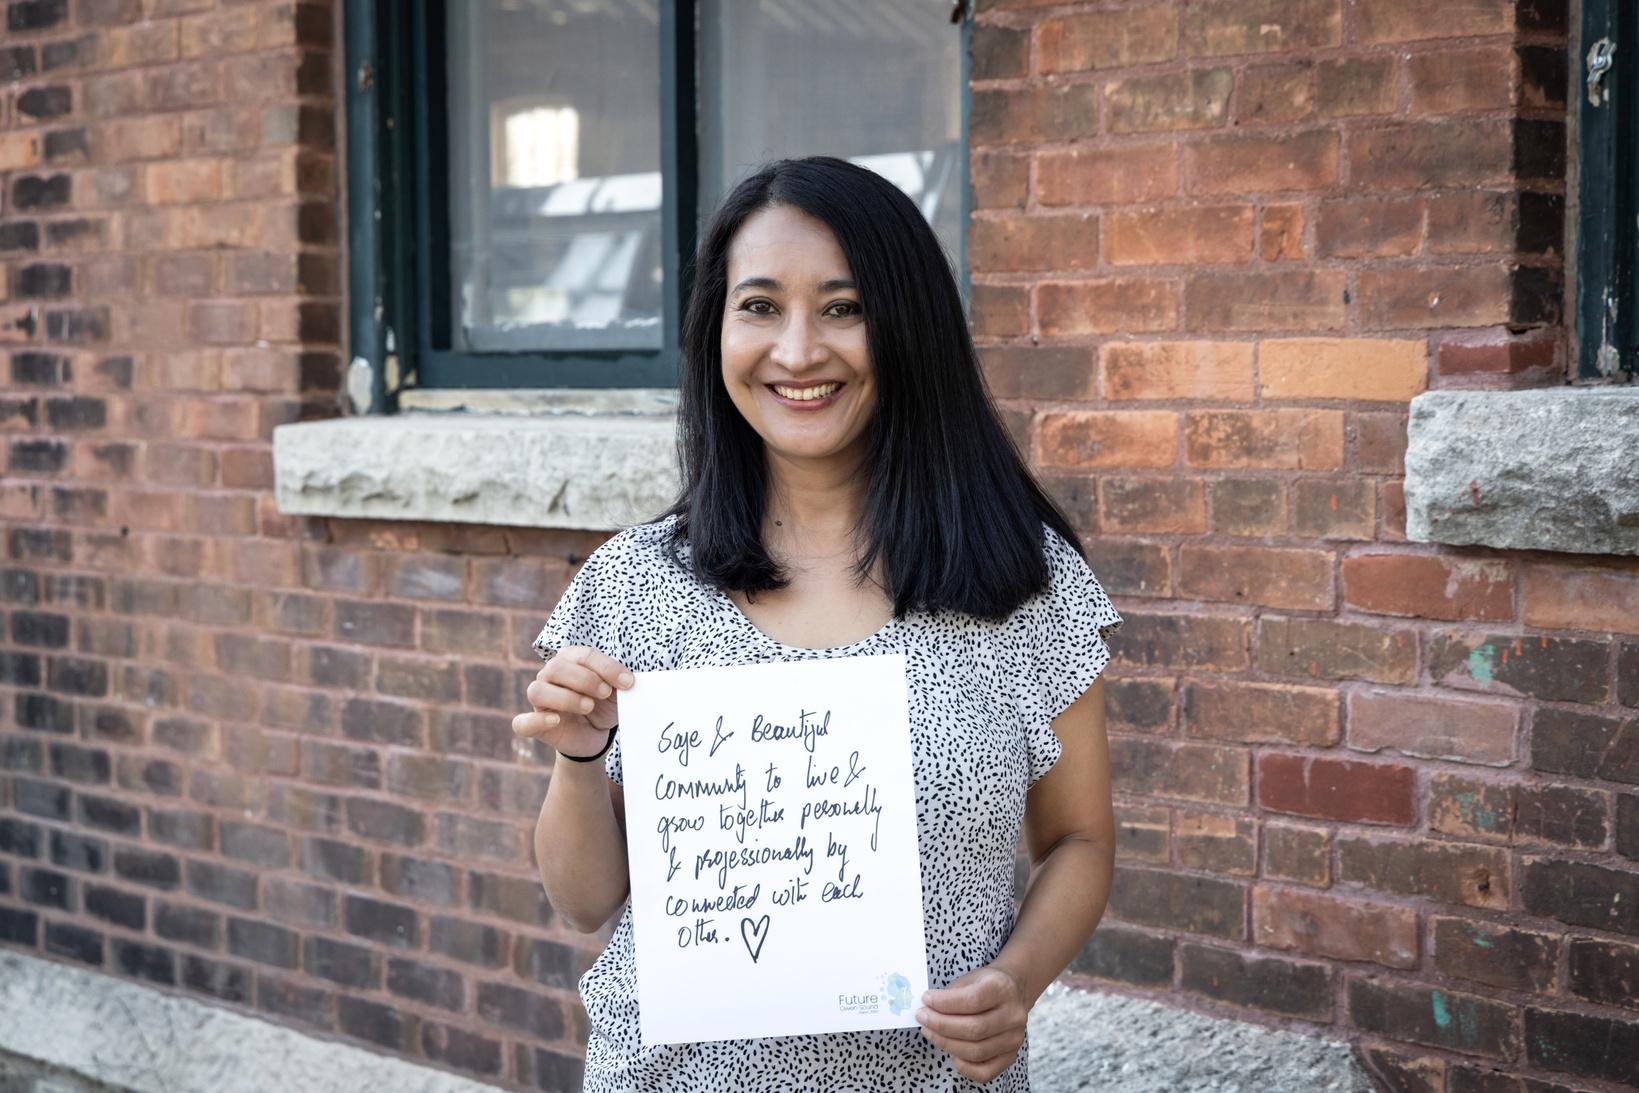 Safe & Beautiful
Community to live &
grow together personally
& professionally by
connected with each
other.
Future
Owen Sound